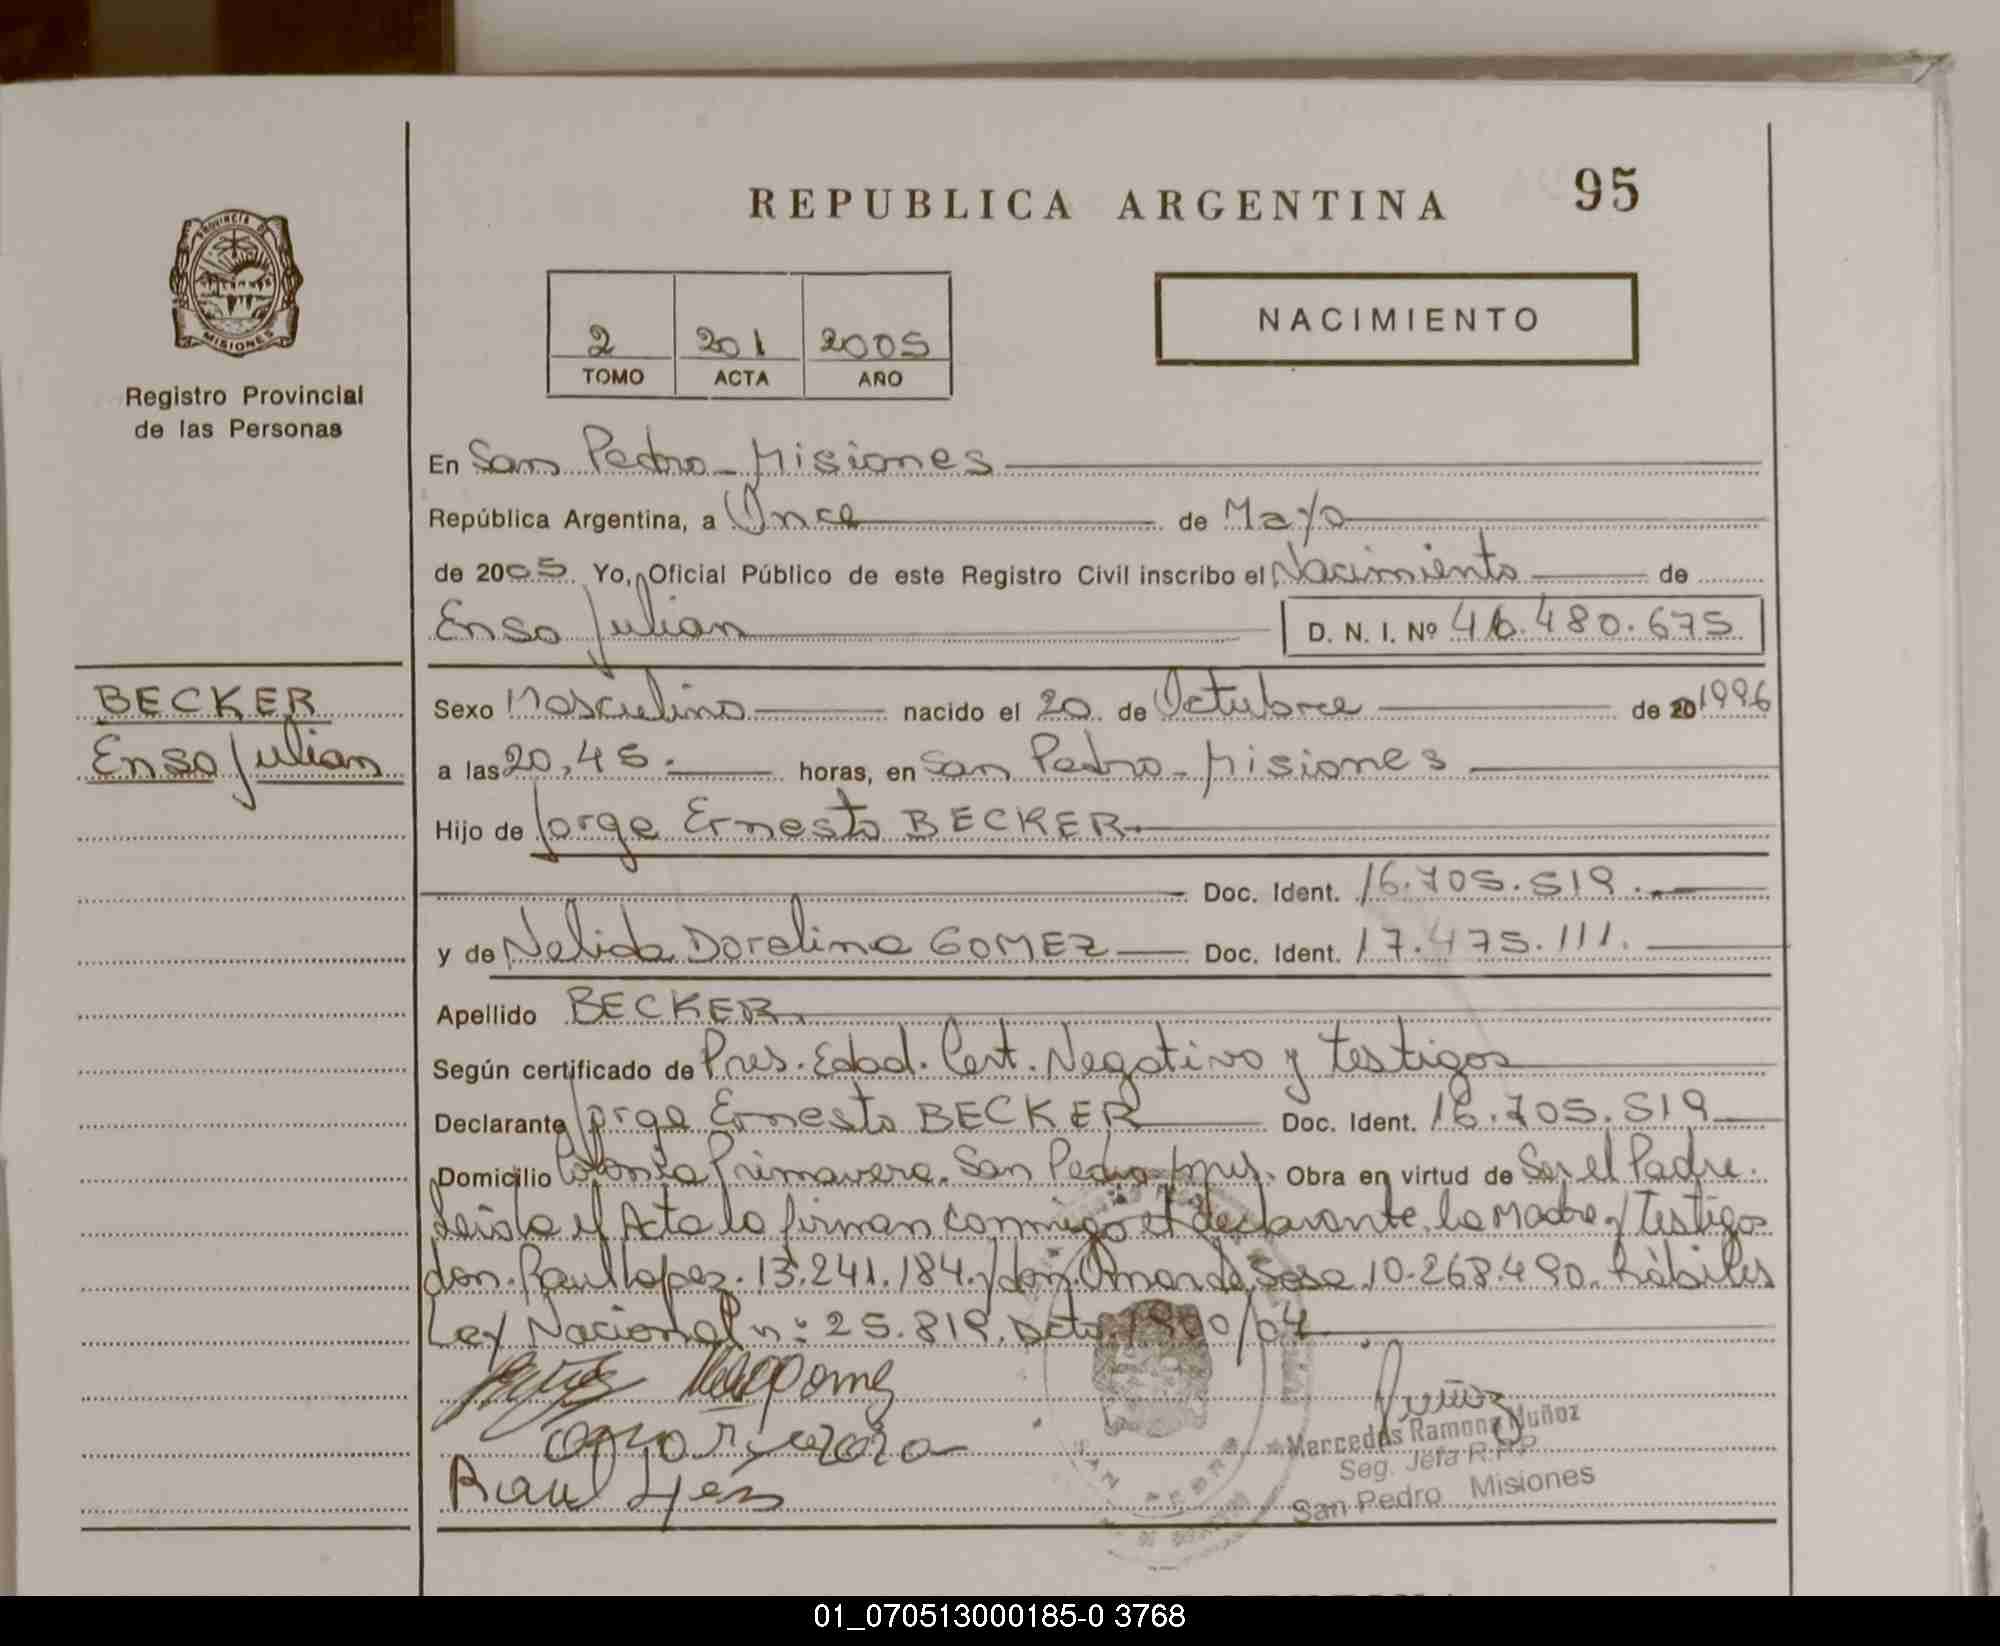 REPUBLICA ARGENTINA 95
PROVINCIA DE
MISIONES
Registro Provincial
de las Personas
NACIMIENTO
2 201 2005
TOMO ACTA AÑO
En San Pedro - Misiones
República Argentina, a Once de Mayo
de 2005. Yo, Oficial Público de este Registro Civil inscribo el Nacimiento de
Enso Julian D. N. I. Nº 46.480.675
BECKER
Enso Julian
Sexo Masculino nacido el 20 de Octubre de 20 1996
a las 20,45. horas, en San Pedro - Misiones
Hijo de Jorge Ernesto BECKER
Doc. Ident. 16.705.519.
y de Nelida Dorelina GOMEZ Doc. Ident. 17.475.111.
Apellido BECKER.
Según certificado de Pres. Edad. Cert. Negativo y testigos
Declarante Jorge Ernesto BECKER Doc. Ident. 16.705.519
Domicilio Colonia Primavera. San Pedro Mnes. Obra en virtud de Ser el Padre.
Leida el Acta lo firman conmigo el declarante, la Madre y Testigos
don. Raul Lopez. 13.241.184. y don. Omar de Sosa 10.268.490. hábiles
Ley Nacional n: 25.819. Dcto. 1900/04
Mercedes Ramona Muñoz
Seg. Jefa R.P.P.
San Pedro Misiones
SAN PEDRO
01_070513000185-0 3768